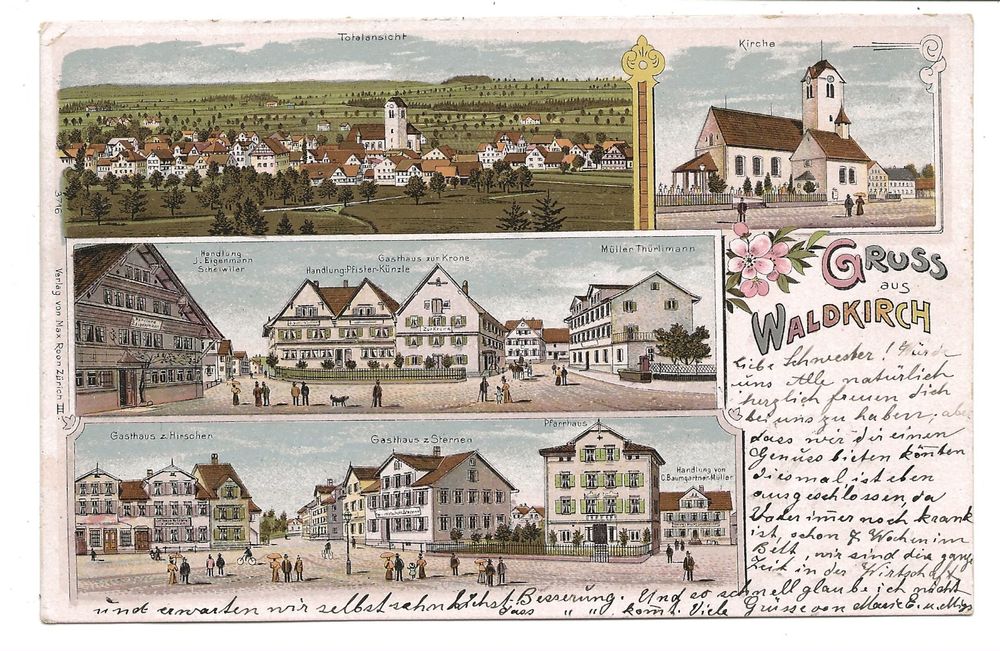 Totalansicht
Kirche
3716
Verlag von Max Roon Zürich III.
Handlung
J. Eigenmann
Scheiwiler
Handlung: Pfister-Künzle
Gasthaus zur Krone
Müller Thürlimann
Zur Krone
GRUSS
aus
WALDKIRCH
Gasthaus z. Hirschen
Gasthaus z. Sternen
Pfarrhaus
Handlung von
C. Baumgartner-Müller
Liebe Schwester! Würde
uns Alle natürlich
herzlich freuen dich
bei uns zu haben; aber
dass wir dir einen
Genuss bieten könten
diesmal ist eben
ausgeschlossen, da
Vater imer noch krank
ist, schon 7 Wochen im
Bett, wir sind die ganze
Zeit in der Wirtschaft
und erwarten wir selbst sehnlichst Besserung. Und so schnell glaube ich nicht
dass " " komt. Viele Grüsse von Marie E. u.